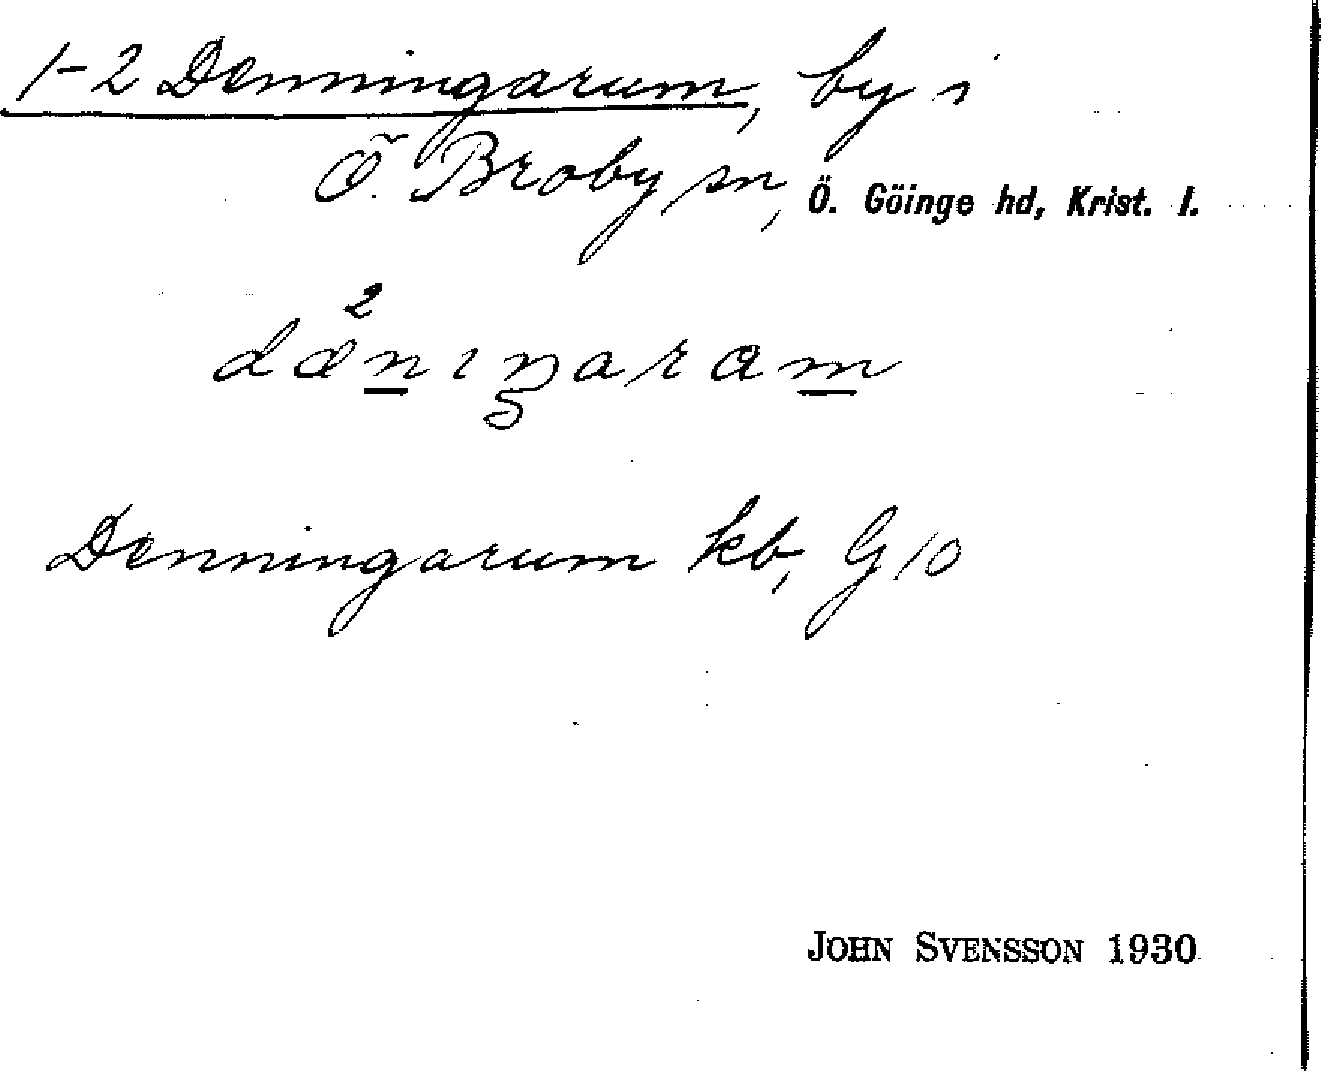 1-2 Denningarum, by i
Ö. Broby sn, Ö. Göinge hd, Krist. l.
dæ²nıŋaram
Denningarum kb, G10
JOHN SVENSSON 1930